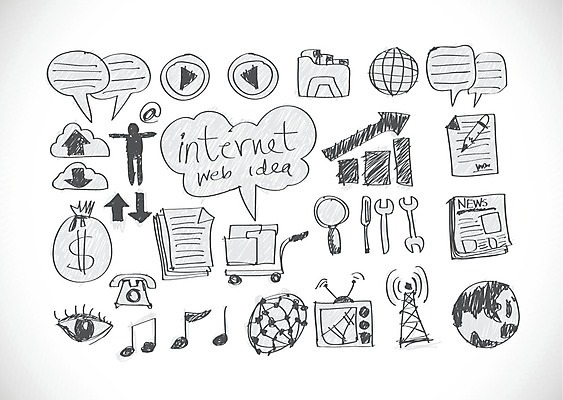 @
internet
web idea
$
NEWS